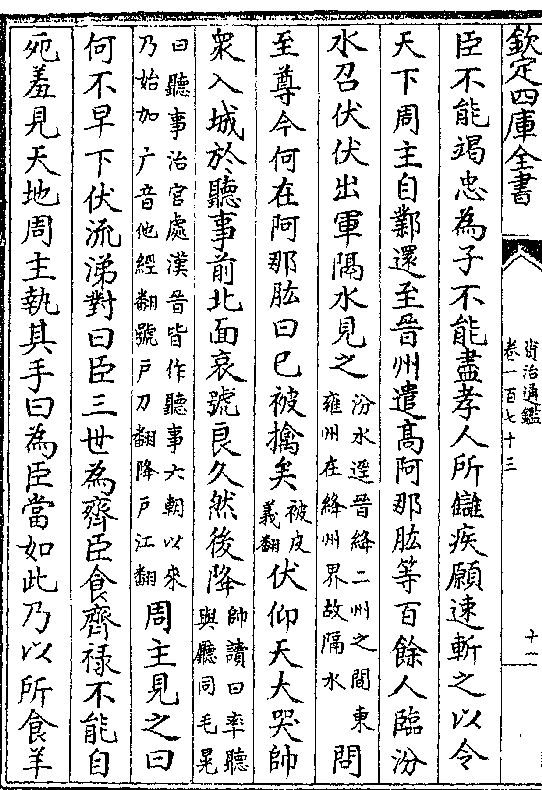 欽定四庫全書
資治通鑑
卷一百七十三
十一
臣不能竭忠為子不能盡孝人所讎疾願速斬之以令
天下周主自鄴還至晉州遣髙阿那肱等百餘人臨汾
水召伏伏出軍隔水見之
汾水逕晉絳二州之間東
雍州在絳州界故隔水
問
至尊今何在阿那肱曰已被擒矣
被皮
義翻
伏仰天大哭帥
衆入城於聽事前北面哀號良久然後降
帥讀曰率聽
與廳同毛晃
曰聽事治官處漢晉皆作聽事六朝以來
乃始加广音他經翻號戶刀翻降戶江翻
周主見之曰
何不早下伏流涕對曰臣三世為齊臣食齊禄不能自
死羞見天地周主執其手曰為臣當如此乃以所食羊